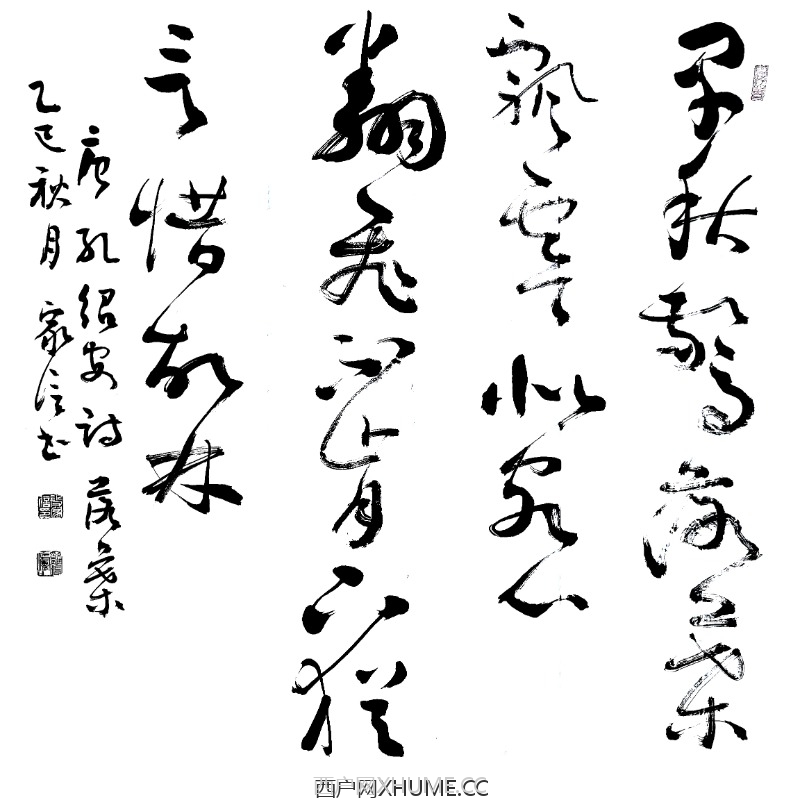 早秋驚落葉
飄零似客心
翻飛不肯下猶
言惜故林
唐孔紹安詩落葉
乙巳秋月家信书
西户网XHUME.CC